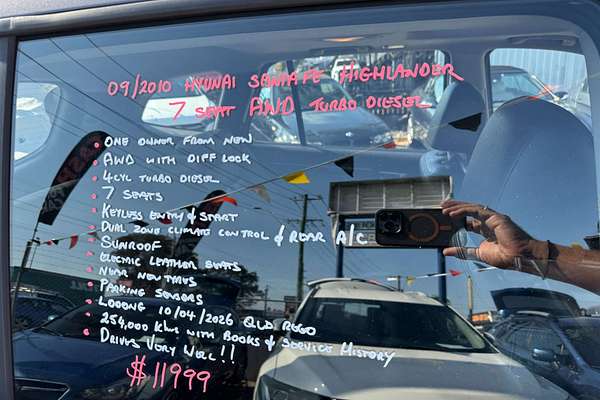 09/2010 HYUNAI SANTA FE HIGHLANDER
7 SEAT AWD TURBO DIESEL
• ONE OWNER FROM NEW
• AWD WITH DIFF LOCK
• 4CYL TURBO DIESEL
• 7 SEATS
• KEYLESS ENTRY & START
• DUAL ZONE CLIMATE CONTROL & REAR A/C
• SUNROOF
• ELECTRIC LEATHER SEATS
• NEAR NEW TYRES
• PARKING SENSORS
• LOOONG 10/04/2026 QLD REGO
• 254,000 KMS WITH BOOKS & SERVICE HISTORY
• DRIVES VERY WELL!!
$11999